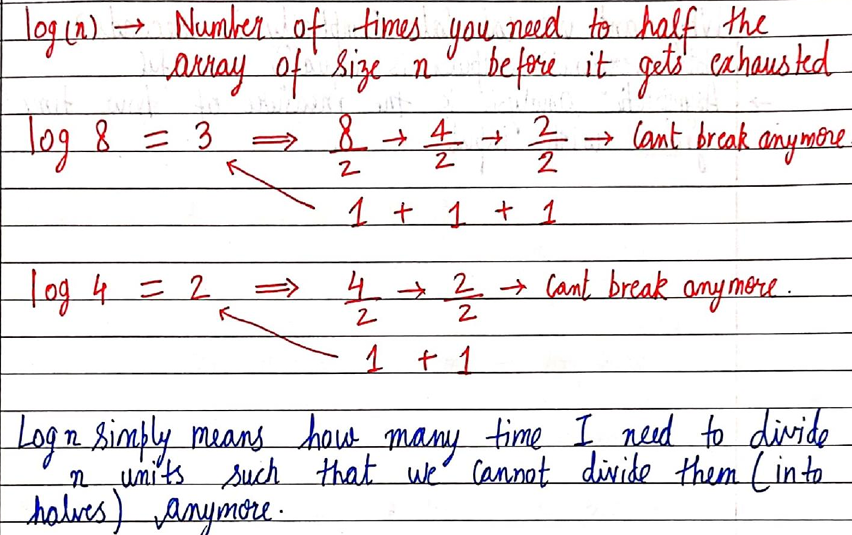 log(n) → Number of times you need to half the
array of size n before it gets exhausted
log 8 = 3 ⟹ 8/2 → 4/2 → 2/2 → Cant break anymore.
1 + 1 + 1
log 4 = 2 ⟹ 4/2 → 2/2 → Cant break anymore.
1 + 1
Log n simply means how many time I need to divide
n units such that we cannot divide them (into
halves) anymore.